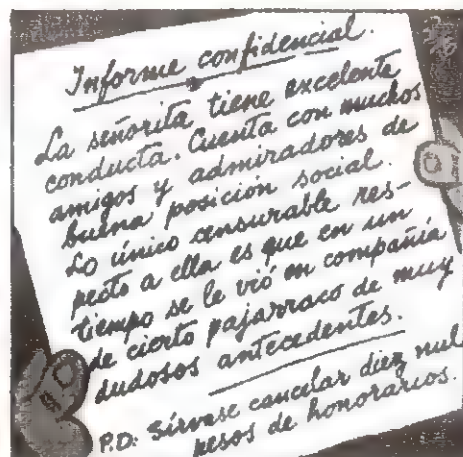 Informe confidencial.
La señorita tiene excelente
conducta. Cuenta con muchos
amigos y admiradores de
buena posición social.
Lo único censurable res-
pecto a ella es que en un
tiempo se le vió en compañía
de cierto pajarraco de muy
dudosos antecedentes.
P.D: Sírvase cancelar diez mil
pesos de honorarios.